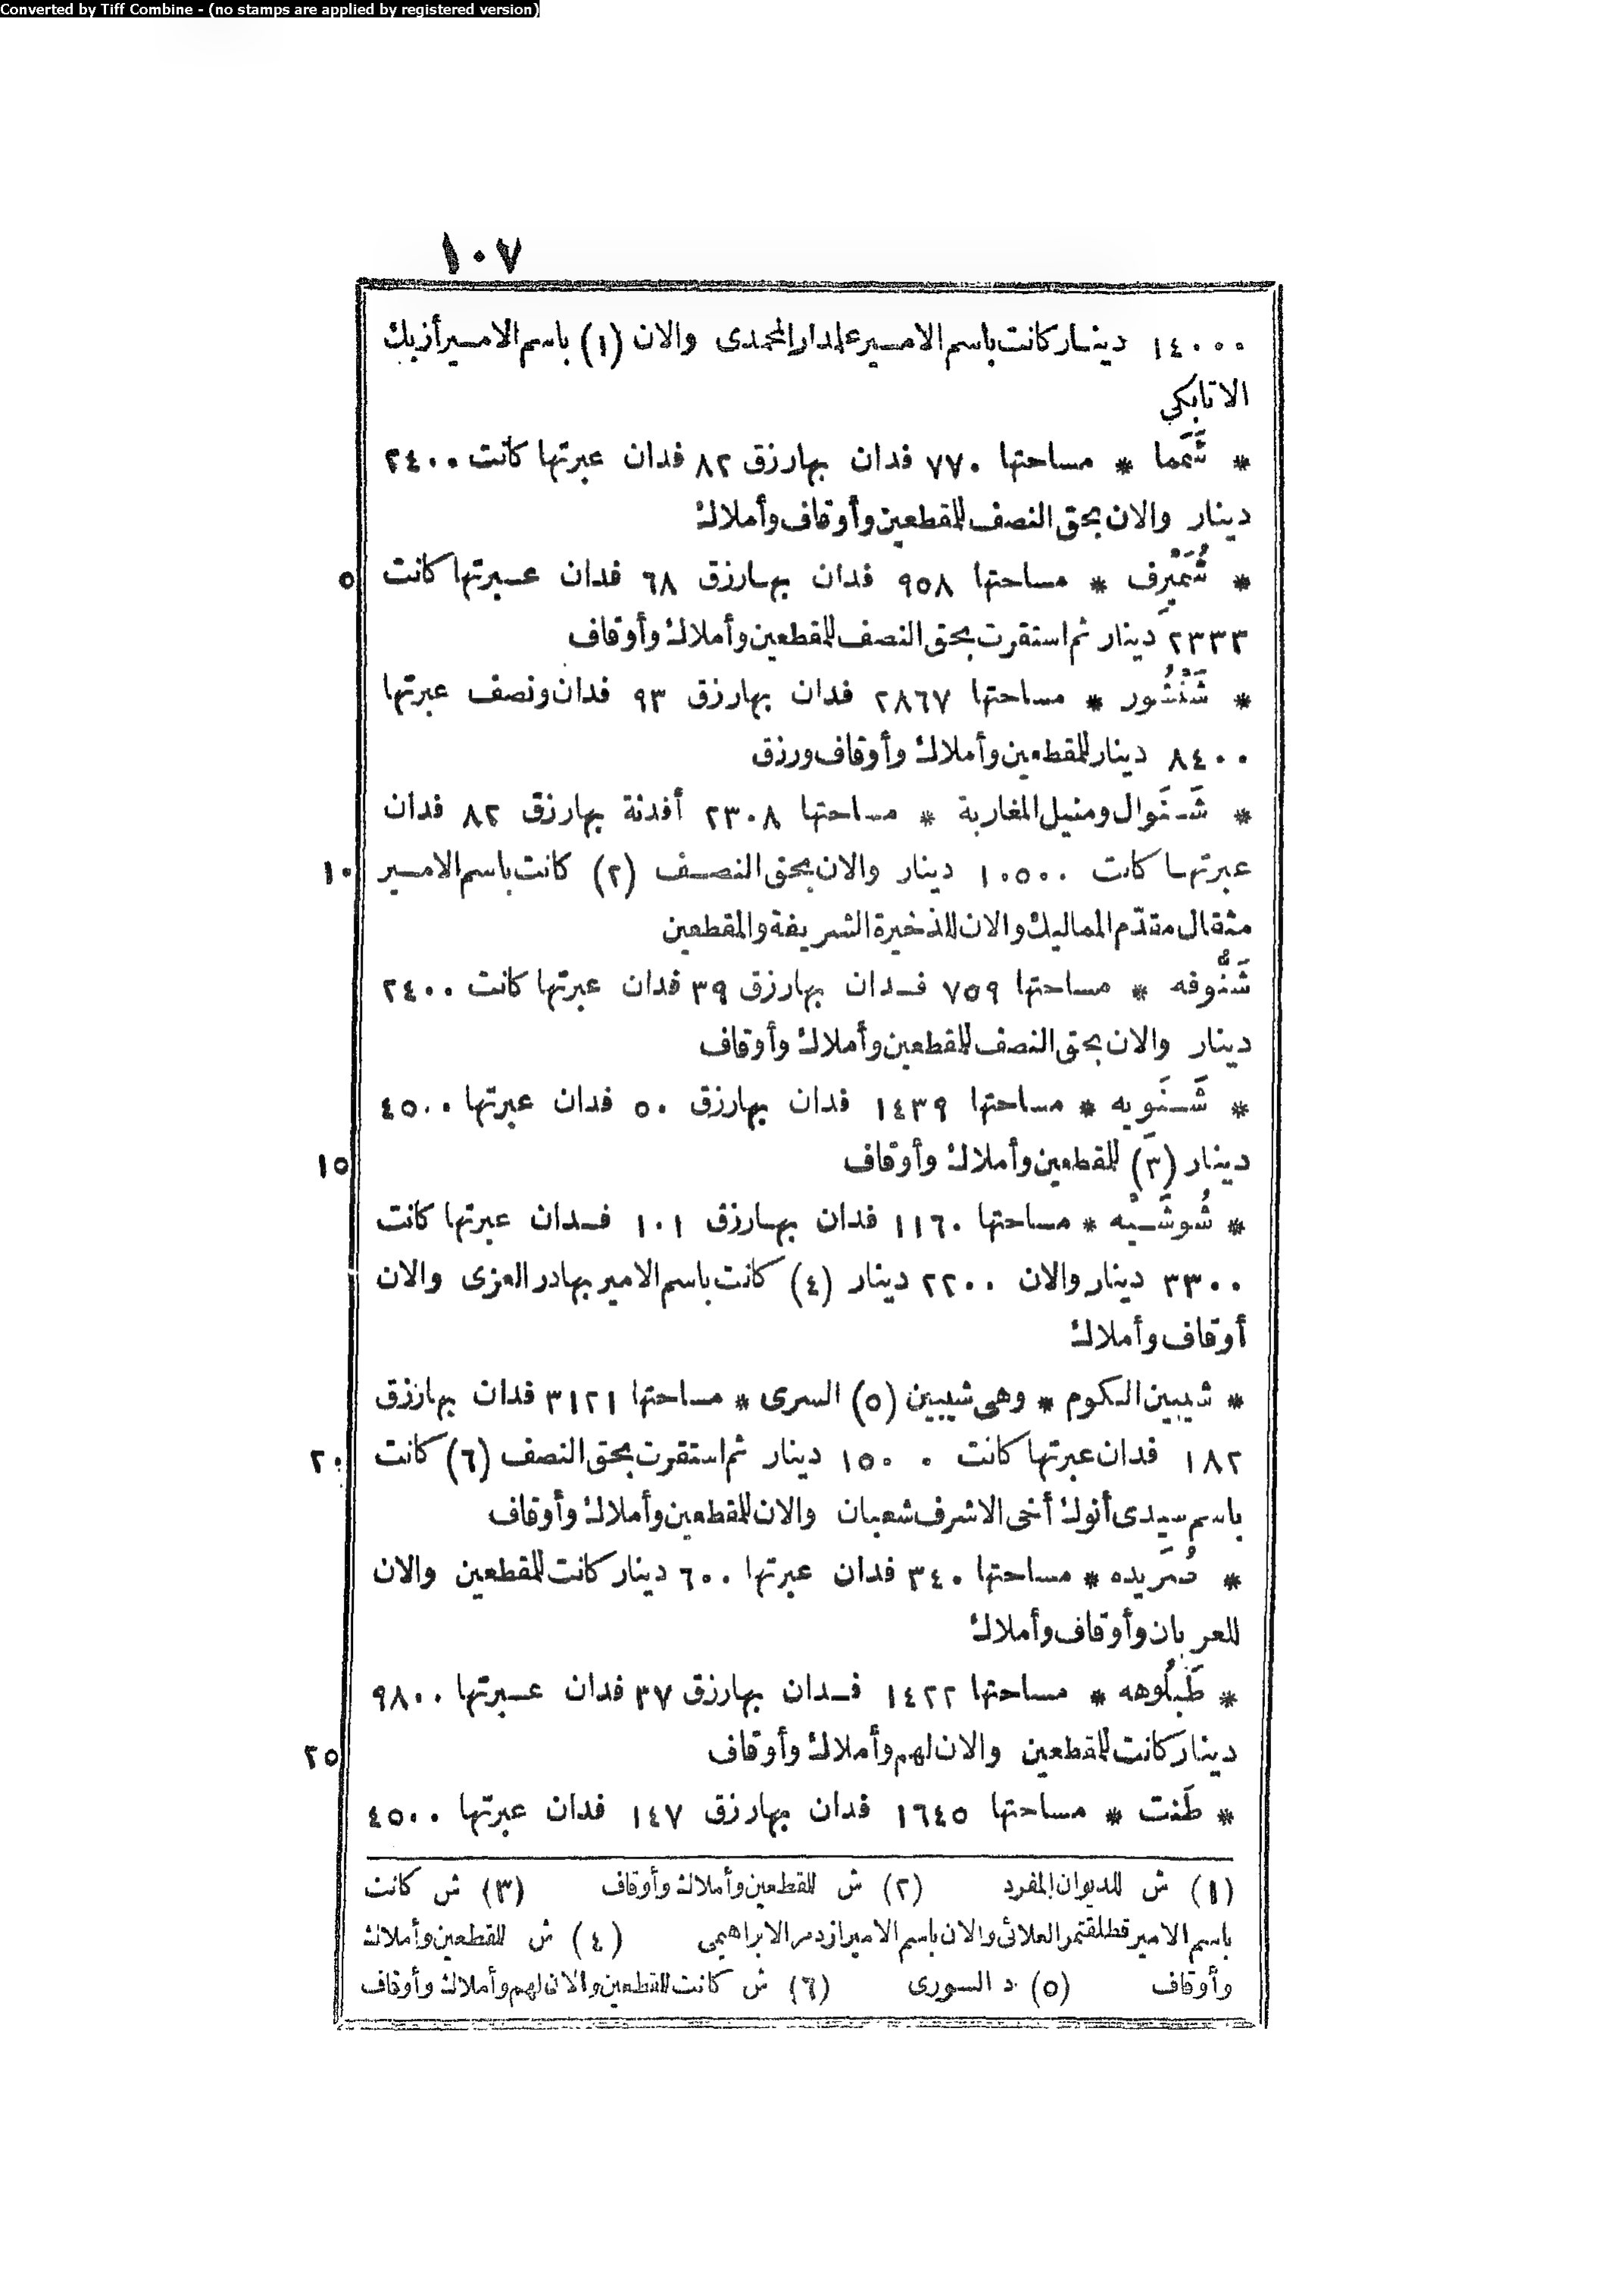 Converted by Tiff Combine - (no stamps are applied by registered version)
١٠٧
١٤٠٠٠ دينار كانت باسم الامير علمدار المحمدى والان (١) باسم الامير أزبك
الاتابكي
* شَمَّما * مساحتها ٧٧٠ فدان بها رزق ٨٢ فدان عبرتها كانت ٢٤٠٠
دينار والان بحق النصف للمقطعين وأوقاف وأملاك
* شُمَيْرِف * مساحتها ٩٥٨ فدان بها رزق ٦٨ فدان عبرتها كانت ٥
٢٣٣٣ دينار ثم استقرت بحق النصف للمقطعين وأملاك وأوقاف
* شَنْشُور * مساحتها ٢٨٦٧ فدان بها رزق ٩٣ فدان ونصف عبرتها
٨٤٠٠ دينار للمقطعين وأملاك وأوقاف ورزق
* شَنَوال ومنيل المغاربة * مساحتها ٢٣٠٨ أفدنة بها رزق ٨٢ فدان
عبرتها كانت ١٠٥٠٠ دينار والان بحق النصف (٢) كانت باسم الامير ١٠
مثقال مقدّم المماليك والان للذخيرة الشريفة والمقطعين
شَنُّوفه * مساحتها ٧٥٩ فدان بها رزق ٣٩ فدان عبرتها كانت ٢٤٠٠
دينار والان بحق النصف للمقطعين وأملاك وأوقاف
* شَنَوِيه * مساحتها ١٤٣٩ فدان بها رزق ٥٠ فدان عبرتها ٤٥٠٠
دينار (٣) للمقطعين وأملاك وأوقاف ١٥
* شُوشَيْه * مساحتها ١١٦٠ فدان بها رزق ١٠١ فدان عبرتها كانت
٣٣٠٠ دينار والان ٢٢٠٠ دينار (٤) كانت باسم الامير بهادر العزى والان
أوقاف وأملاك
* شيبين الكوم * وهى شيبين (٥) السرى * مساحتها ٣١٢١ فدان بها رزق
١٨٢ فدان عبرتها كانت ١٥٠٠٠ دينار ثم استقرت بحق النصف (٦) كانت ٢٠
باسم سيدى أنوك أخى الاشرف شعبان والان للمقطعين وأملاك وأوقاف
* صُرَيده * مساحتها ٣٤٠ فدان عبرتها ٦٠٠ دينار كانت للمقطعين والان
للعربان وأوقاف وأملاك
* طَبْلُوهه * مساحتها ١٤٢٢ فدان بها رزق ٣٧ فدان عبرتها ٩٨٠٠
دينار كانت للمقطعين والان لهم وأملاك وأوقاف ٢٥
* طَنت * مساحتها ١٦٤٥ فدان بها رزق ١٤٧ فدان عبرتها ٤٥٠٠
(١) ش للديوان المفرد (٢) ش للمقطعين وأملاك وأوقاف (٣) ش كانت
باسم الامير قطلقتمر العلائى والان باسم الامير ازدمر الابراهيمى (٤) ش للمقطعين وأملاك
وأوقاف (٥) د السورى (٦) ش كانت للمقطعين والان لهم وأملاك وأوقاف